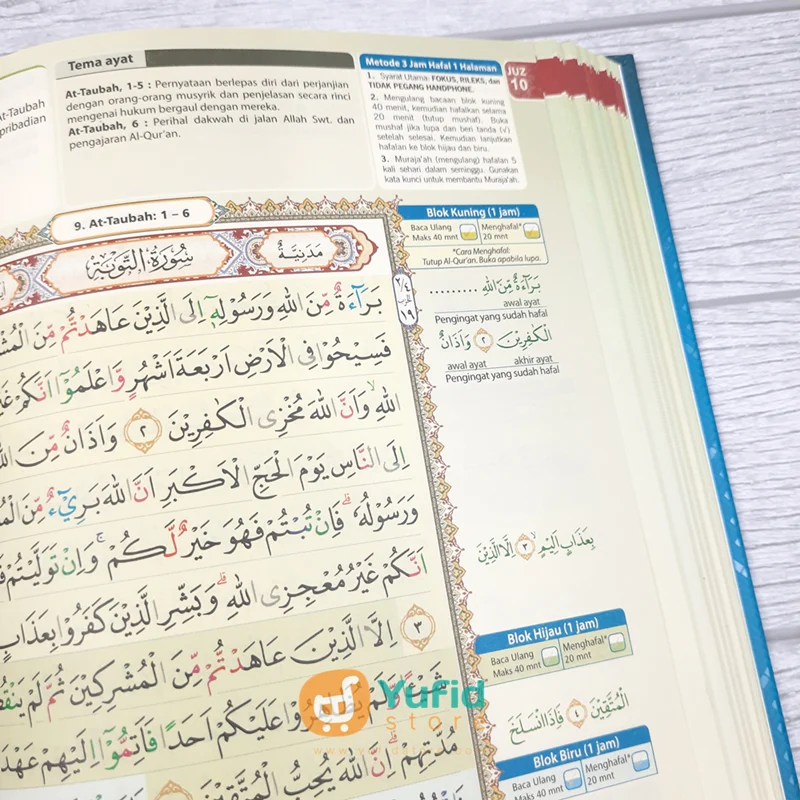 At-Taubah
pribadian
Tema ayat
At-Taubah, 1-5 : Pernyataan berlepas diri dari perjanjian
dengan orang-orang musyrik dan penjelasan secara rinci
mengenai hukum bergaul dengan mereka.
At-Taubah, 6 : Perihal dakwah di jalan Allah Swt. dan
pengajaran Al-Qur'an.
Metode 3 Jam Hafal 1 Halaman
1. Syarat Utama: FOKUS, RILEKS, dan
TIDAK PEGANG HANDPHONE.
2. Mengulang bacaan blok kuning
40 menit, kemudian hafalkan selama
20 menit (tutup mushaf). Buka
mushaf jika lupa dan beri tanda (√)
setelah selesai. Kemudian lanjutkan
hafalan ke blok hijau dan biru.
3. Muraja'ah (mengulang) hafalan 5
kali sehari dalam seminggu. Gunakan
kata kunci untuk membantu Muraja'ah.
JUZ
10
9. At-Taubah: 1 – 6
سُورَةُ التَّوْبَةِ
مَدَنِيَّةٌ
بَرَاۤءَةٌ مِّنَ اللّٰهِ وَرَسُوْلِهٖٓ اِلَى الَّذِيْنَ عَاهَدْتُّمْ مِّنَ
فَسِيْحُوْا فِى الْاَرْضِ اَرْبَعَةَ اَشْهُرٍ وَّاعْلَمُوْٓا اَنَّكُمْ
اللّٰهِ ۙوَاَنَّ اللّٰهَ مُخْزِى الْكٰفِرِيْنَ ٢ وَاَذَانٌ مِّنَ
اِلَى النَّاسِ يَوْمَ الْحَجِّ الْاَكْبَرِ اَنَّ اللّٰهَ بَرِيْۤءٌ مِّنَ
وَرَسُوْلُهٗ ۗ فَاِنْ تُبْتُمْ فَهُوَ خَيْرٌ لَّكُمْ ۚ وَاِنْ تَوَلَّيْتُمْ
اَنَّكُمْ غَيْرُ مُعْجِزِى اللّٰهِ ۗ وَبَشِّرِ الَّذِيْنَ كَفَرُوْا بِعَذَابٍ
٣ اِلَّا الَّذِيْنَ عَاهَدْتُّمْ مِّنَ الْمُشْرِكِيْنَ ثُمَّ لَمْ
عَلَيْكُمْ اَحَدًا فَاَتِمُّوْٓا اِلَيْهِمْ
مُدَّتِهِمْ ۗ اِنَّ اللّٰهَ يُحِبُّ الْمُتَّقِيْنَ
١٩
Blok Kuning (1 jam)
Baca Ulang
Maks 40 mnt
Menghafal*
20 mnt
*Cara Menghafal:
Tutup Al-Qur'an. Buka apabila lupa.
بَرَاۤءَةٌ مِّنَ اللّٰهِ .........
awal ayat
Pengingat yang sudah hafal
الْكٰفِرِيْنَ ٢ وَاَذَانٌ
awal ayat akhir ayat
Pengingat yang sudah hafal
بِعَذَابٍ اَلِيْمٍ ۙ ٣ اِلَّا الَّذِيْنَ
Blok Hijau (1 jam)
Baca Ulang
Maks 40 mnt
Menghafal*
20 mnt
الْمُتَّقِيْنَ ٤ فَاِذَا انْسَلَخَ
Blok Biru (1 jam)
Baca Ulang
Maks 40 mnt
Menghafal*
20 mnt
Yufid
store